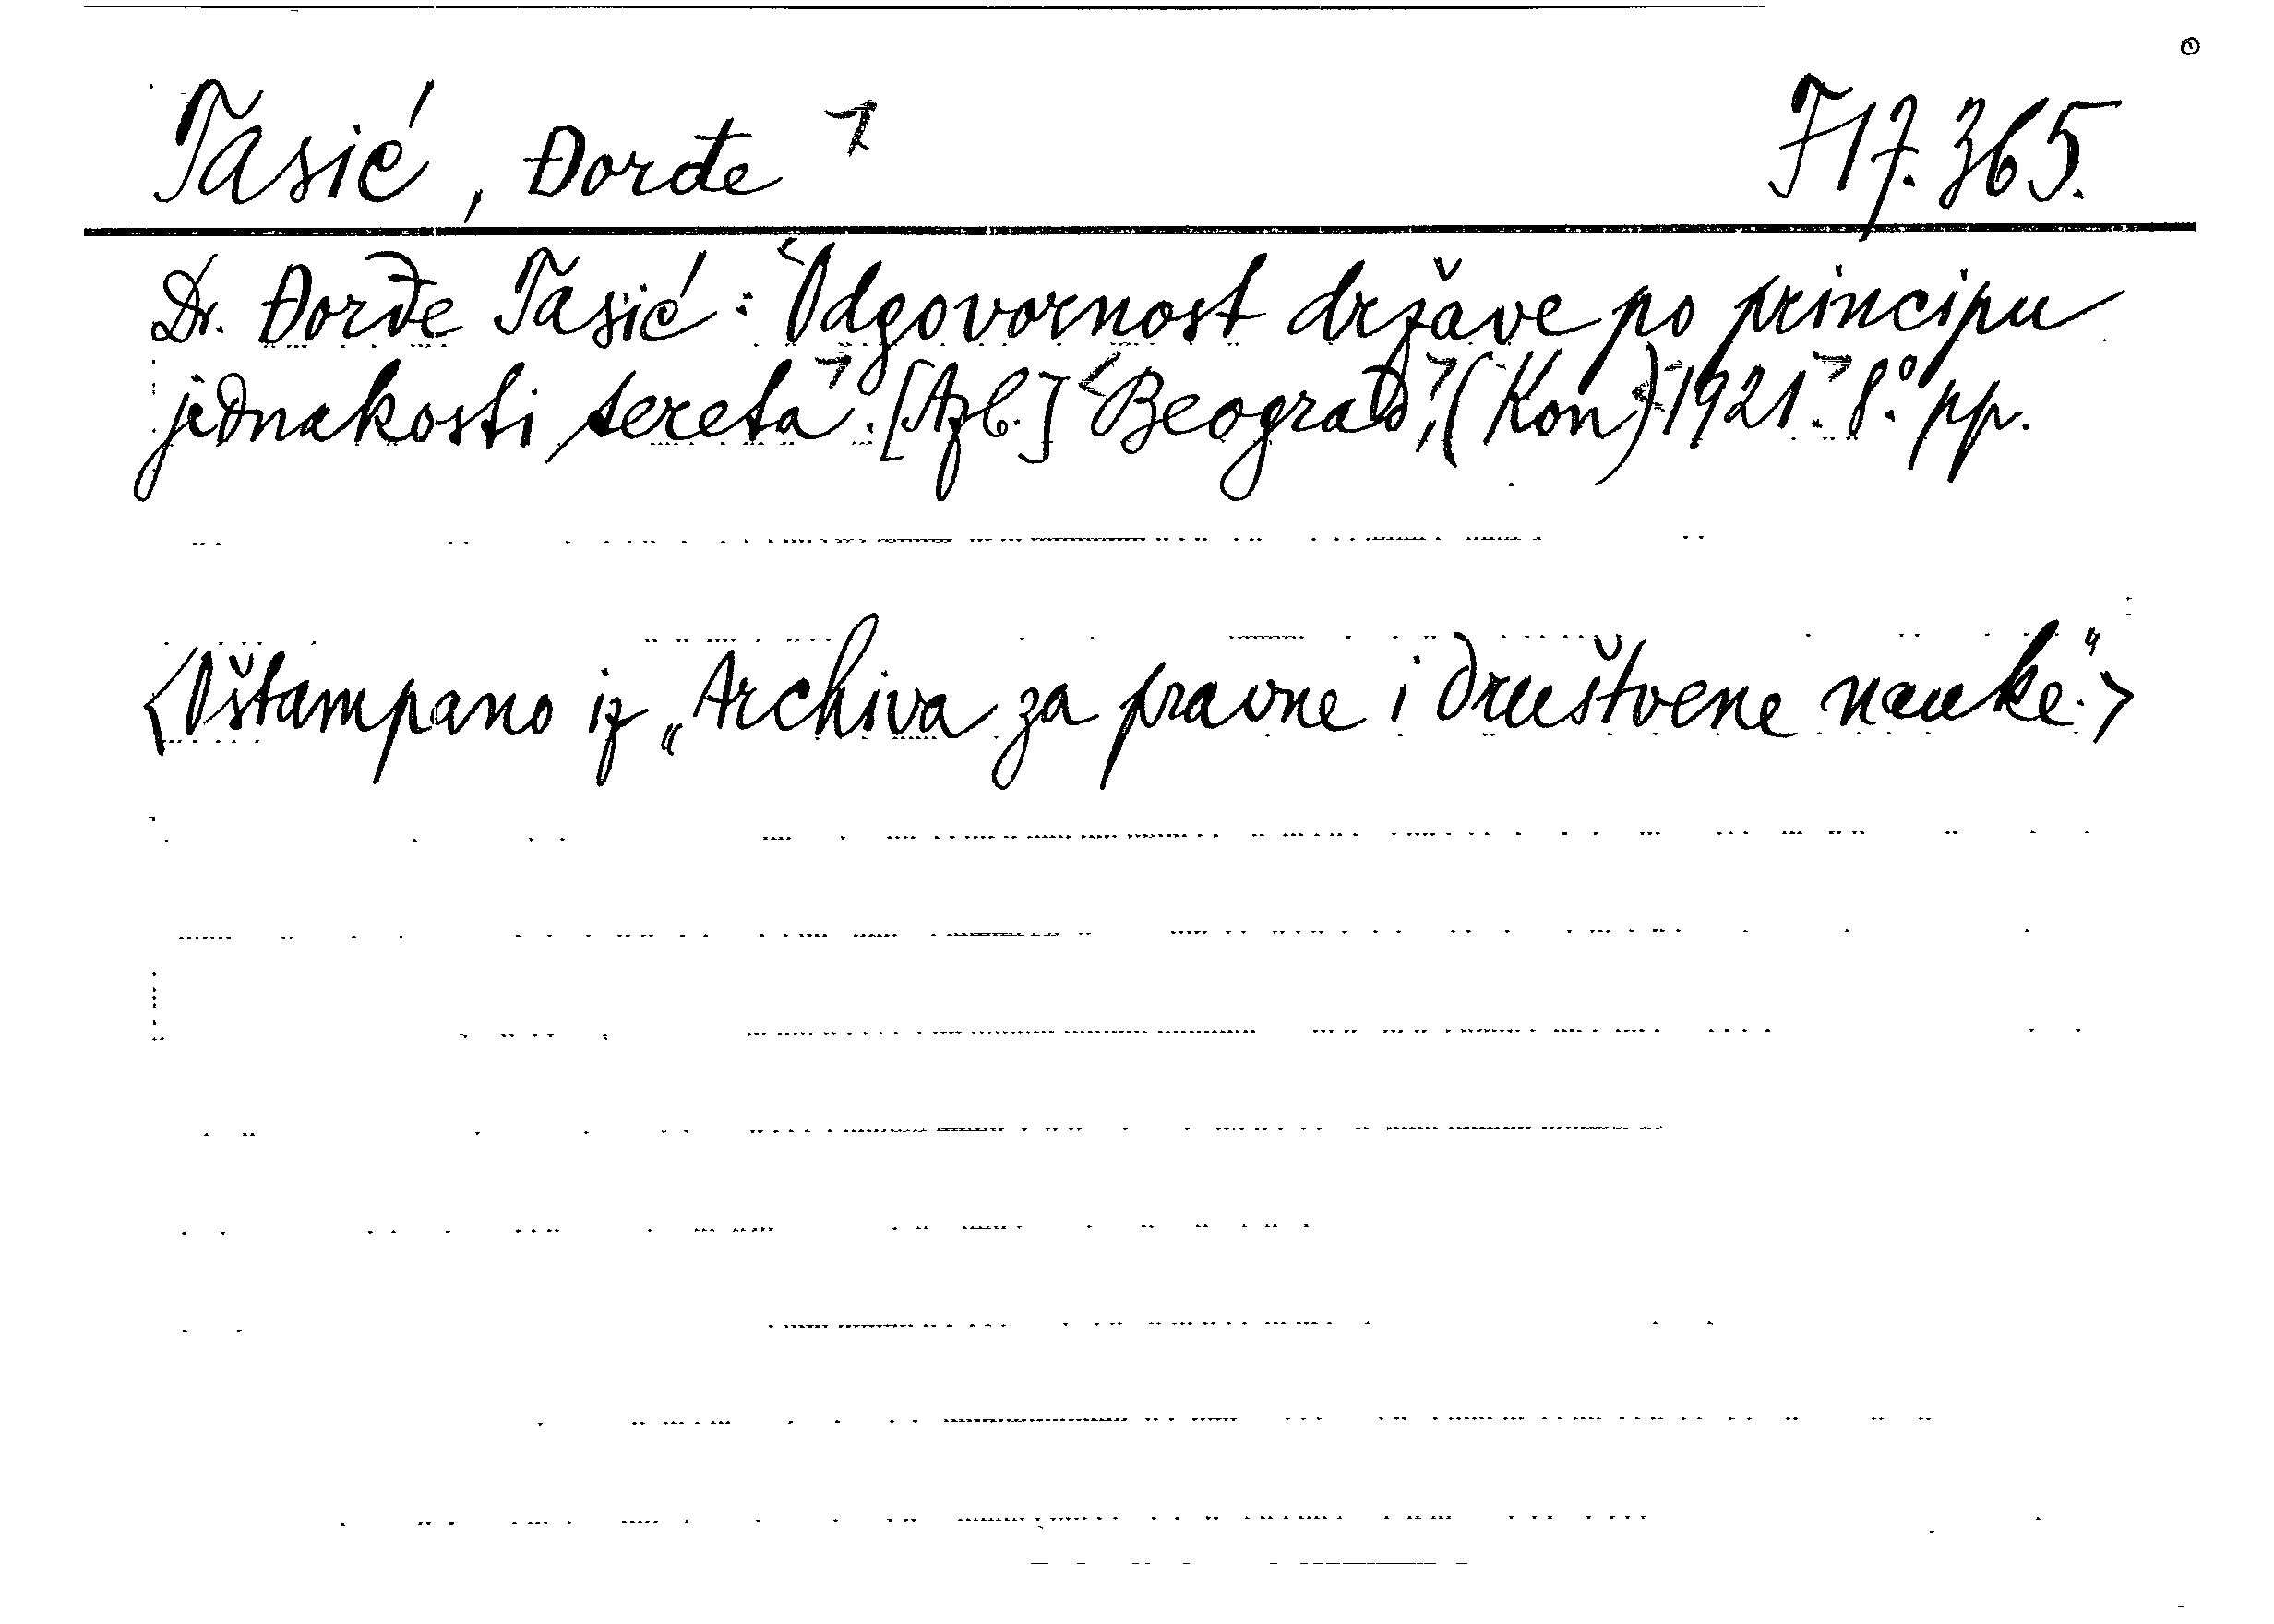 Tasić, Đorđe 717.365.
Dr. Đorđe Tasić: Odgovornost države po principu
jednakosti tereta. [Azb.] Beograd, (Kon) 1921. 8.° pp.
<Oštampano iz „Archiva za pravne i društvene nauke.">